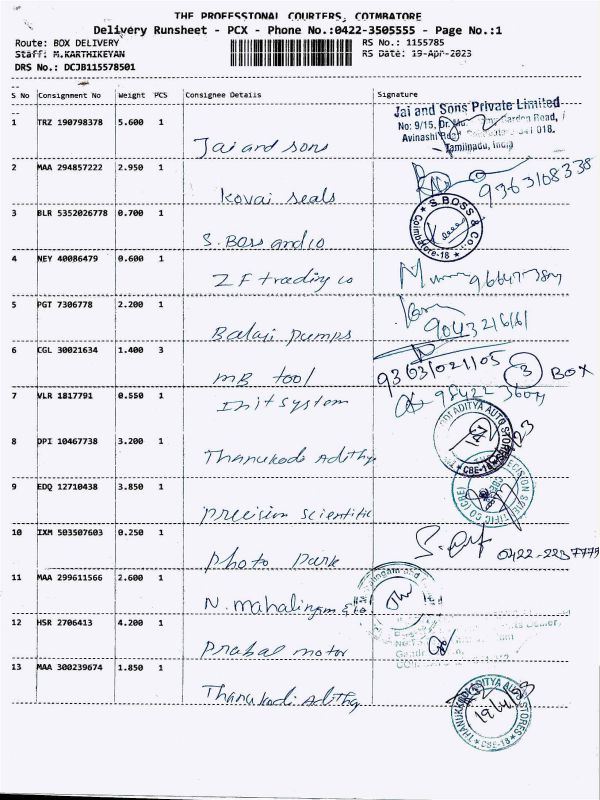 THE PROFESSIONAL COURIERS, COIMBATORE
Delivery Runsheet - PCX - Phone No.:0422-3505555 - Page No.:1
Route: BOX DELIVERY RS No.: 1155785
Staff: M.KARTHIKEYAN RS Date: 19-Apr-2023
DRS No.: DCJB115578501
S No Consignment No Weight PCS Consignee Details Signature
1 TRZ 190798378 5.600 1
Jai and sons
Jai and Sons Private Limited
No: 9/15, Dr. Road,
Avinashi 018.
Tamilnadu, India
2 MAA 294857222 2.950 1
Kovai seals
9363108338
3 BLR 5352026778 0.700 1
S. Boss and co
S.BOSS & Co
Coimbatore-18
4 NEY 40086479 0.600 1
ZF trading co
5 PGT 7306778 2.200 1
Balaji pumps
9043216161
6 CGL 30021634 1.400 3
MB tool
9363102105 3 BOX
7 VLR 1817791 0.550 1
Init system
8 DPI 10467738 3.200 1
Thanukodi Adithya
ADITYA AUTO STORES
CBE-18
9 EDQ 12710438 3.850 1
precision scientific
PRECISION SCIENTIFIC CO (CBE)
10 IXM 503507603 0.250 1
photo park
11 MAA 299611566 2.600 1
N. mahalingam & co
12 HSR 2706413 4.200 1
Prabal motor
13 MAA 300239674 1.850 1
Thanukodi Adithy
THANUKKODI ADITYA AUTO STORES
CBE-18
19/4/23